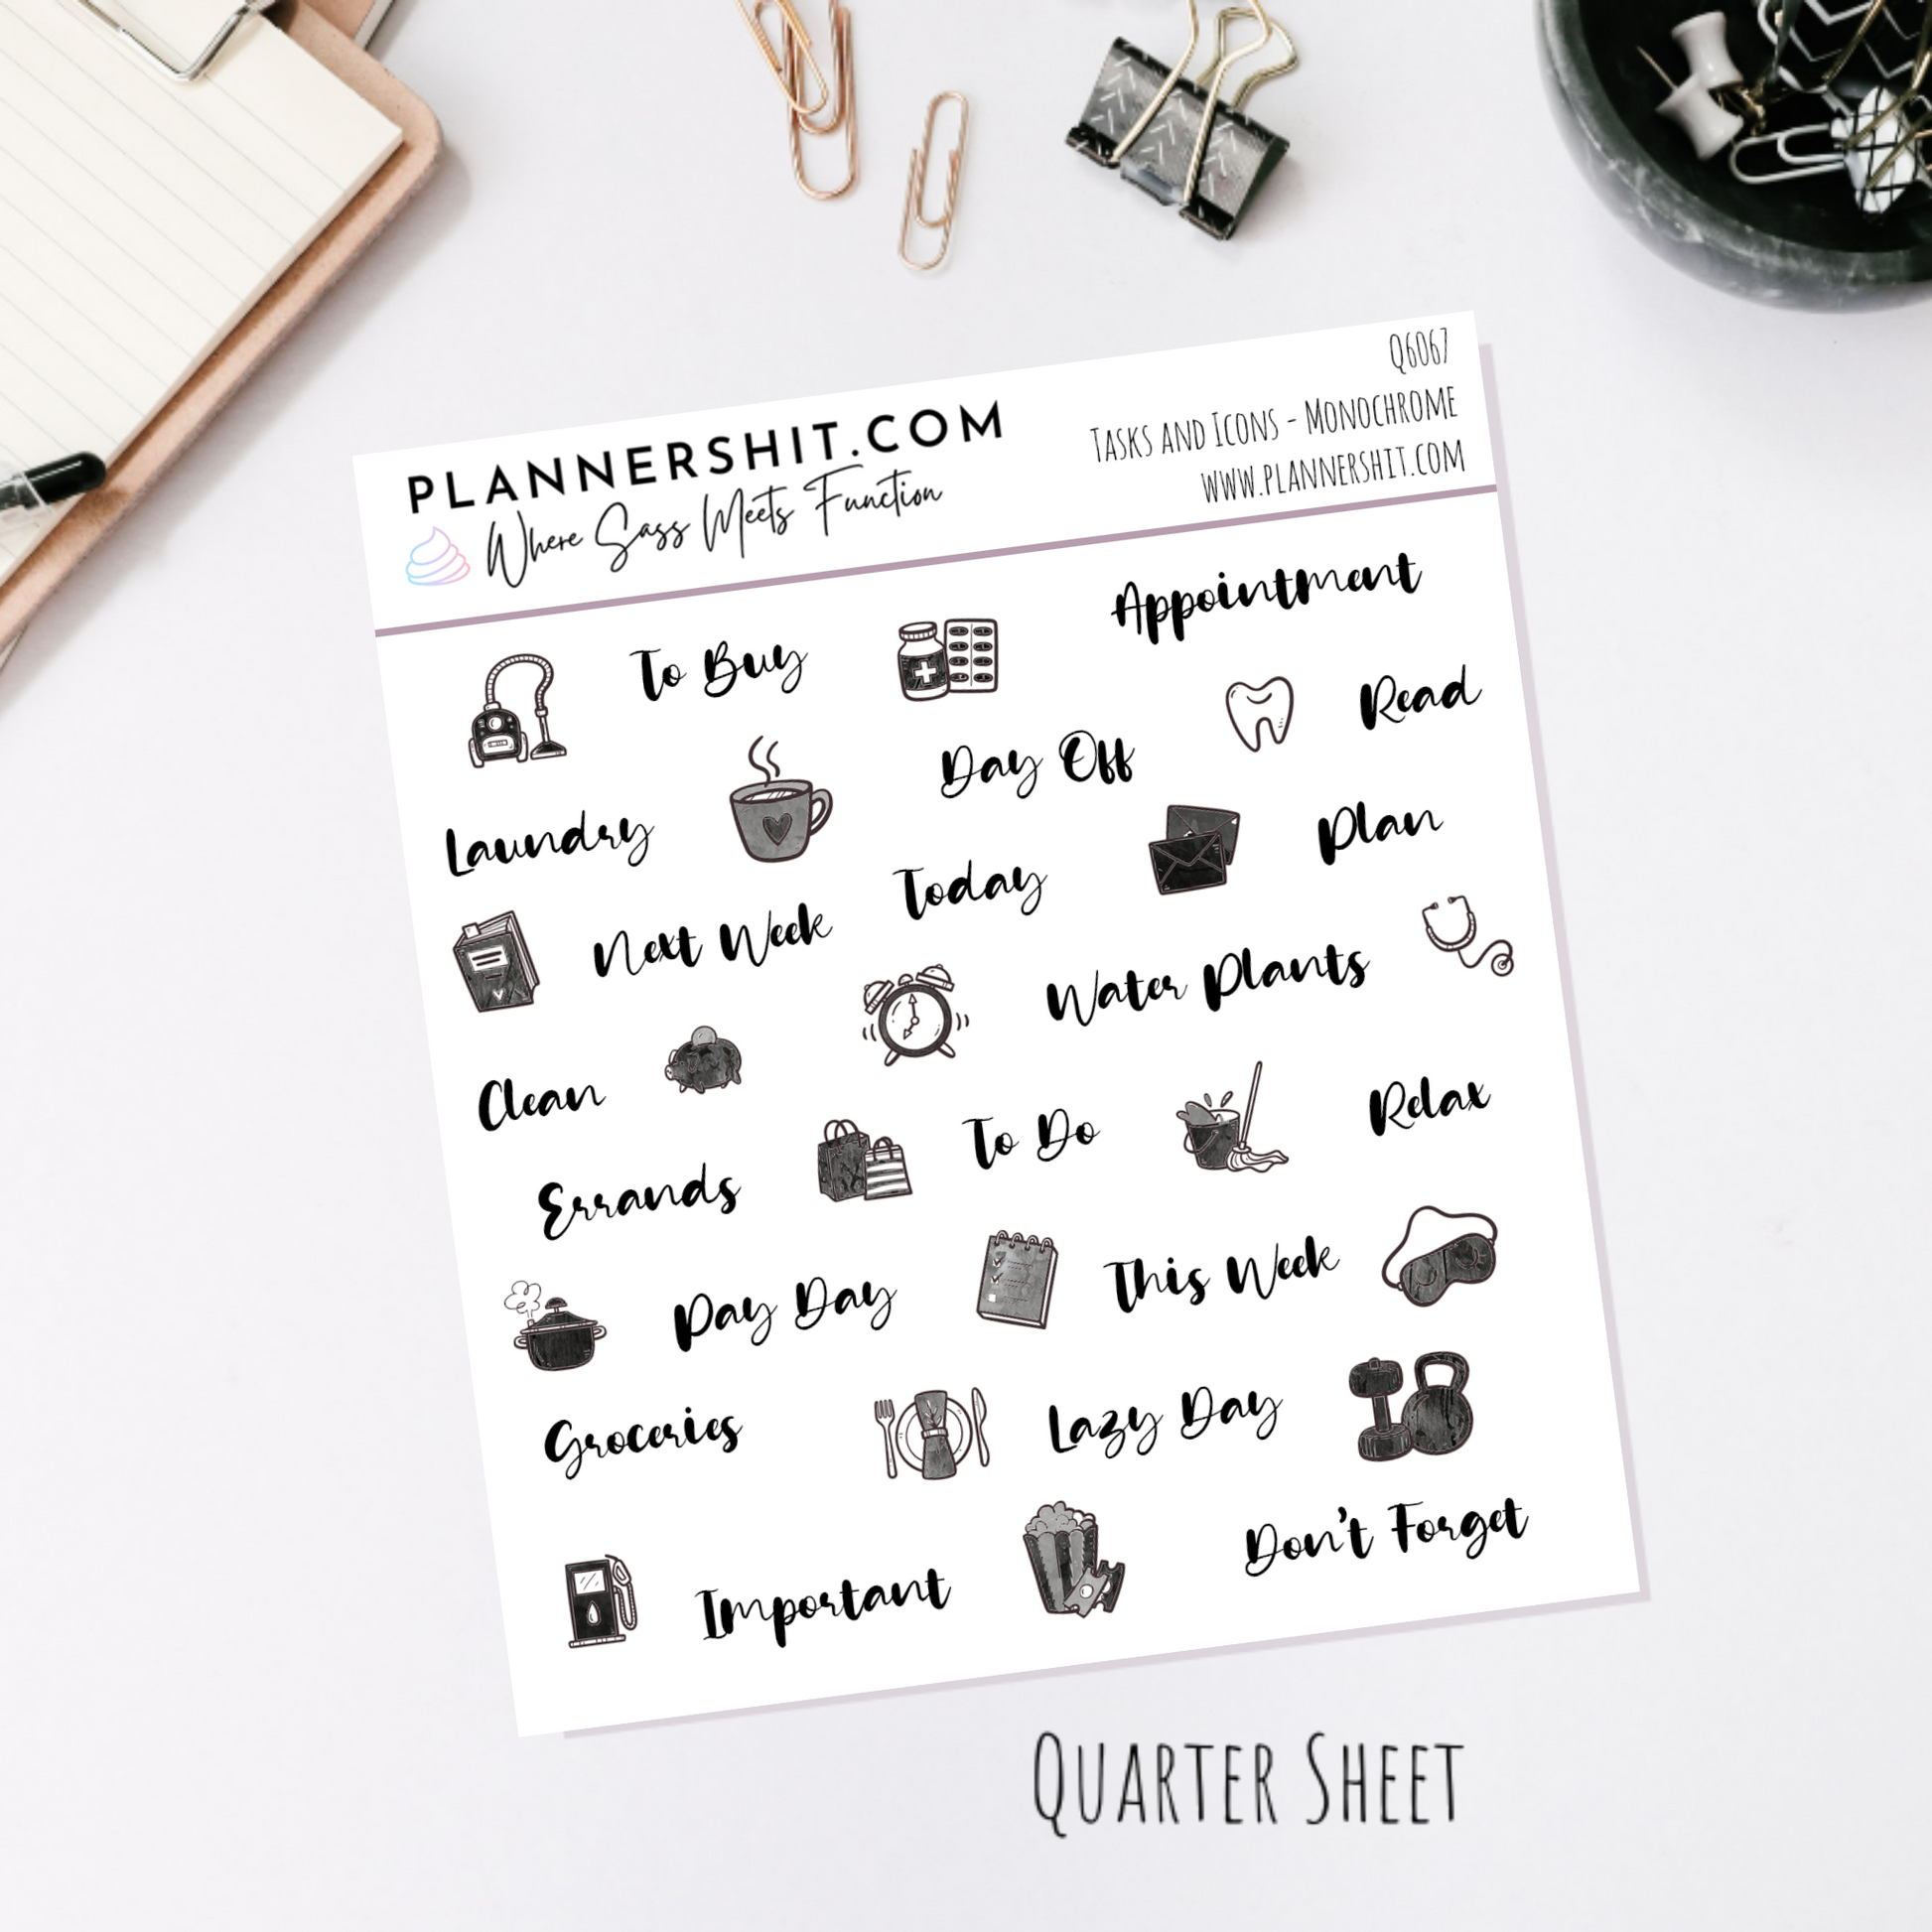 PLANNERSHIT.COM
Where Sass Meets Function
Q6067
Tasks and Icons - Monochrome
www.plannershit.com
Appointment
To Buy
Read
Day Off
Laundry
Plan
Today
Next Week
Water Plants
Clean
Relax
To Do
Errands
This Week
Pay Day
Lazy Day
Groceries
Don't Forget
Important
Quarter Sheet